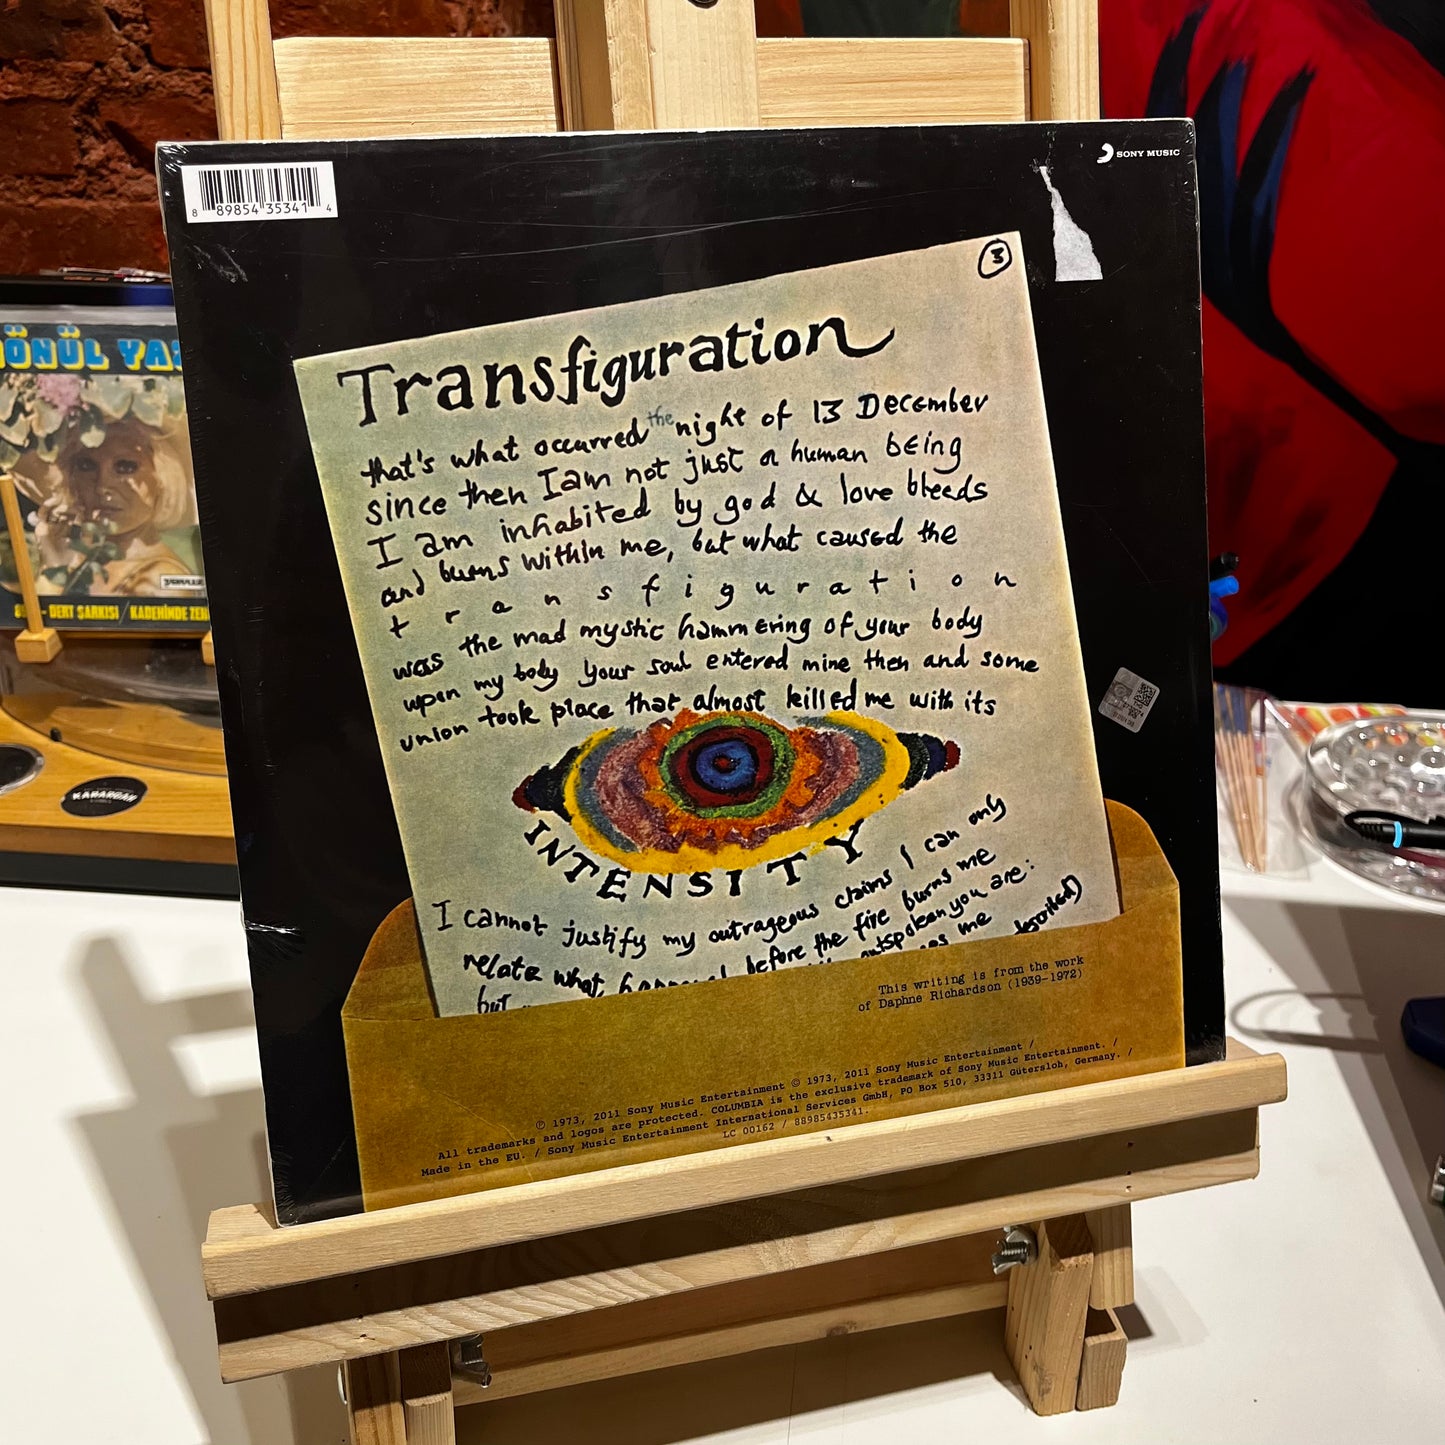 8 89854 35341 4
SONY MUSIC
3
Transfiguration
that's what occurred the night of 13 December
since then I am not just a human being
I am inhabited by god & love bleeds
and burns within me, but what caused the
transfiguration
was the mad mystic hammering of your body
upon my body your soul entered mine then and some
union took place that almost killed me with its
INTENSITY
I cannot justify my outrageous claims I can only
relate what before the fire burns me
but outspoken you are:
me described)
This writing is from the work
of Daphne Richardson (1939-1972)
℗ 1973, 2011 Sony Music Entertainment © 1973, 2011 Sony Music Entertainment /
All trademarks and logos are protected. COLUMBIA is the exclusive trademark of Sony Music Entertainment. /
Made in the EU. / Sony Music Entertainment International Services GmbH, PO Box 510, 33311 Gütersloh, Germany. /
LC 00162 / 88985435341.
ÖNÜL YA
DERT ŞARKISI / KADEHİNDE